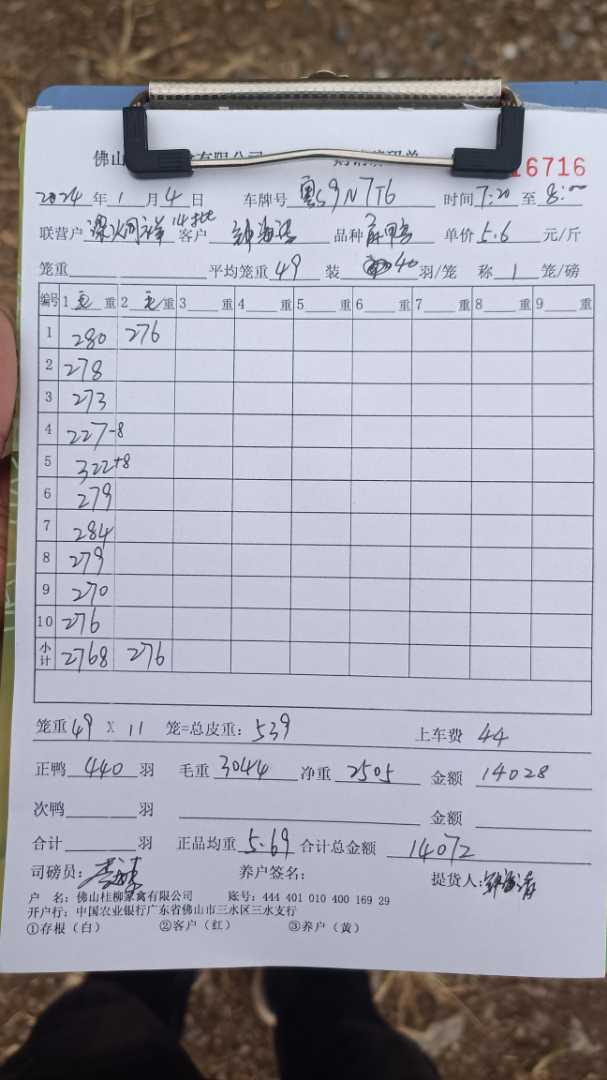 佛山 有限公司 16716
2024 年 1 月 4 日 车牌号 粤S9N7T6 时间 7:20 至 8:00
联营户 客户 品种 单价 5.6 元/斤
笼重 平均笼重 49 装 40 羽/笼 称 1 笼/磅
编号 1 毛 重 2 毛 重 3 重 4 重 5 重 6 重 7 重 8 重 9 重
1 280 276
2 278
3 273
4 227-8
5 322+8
6 279
7 284
8 279
9 270
10 276
小计 2768 276
笼重 49 X 11 笼=总皮重: 539 上车费 44
正鸭 440 羽 毛重 3044 净重 2505 金额 14028
次鸭 羽 金额
合计 羽 正品均重 5.69 合计总金额 14072
司磅员: 养户签名: 提货人:
户 名: 佛山桂柳家禽有限公司 账号: 444 401 010 400 169 29
开户行: 中国农业银行广东省佛山市三水区三水支行
①存根(白) ②客户(红) ③养户(黄)